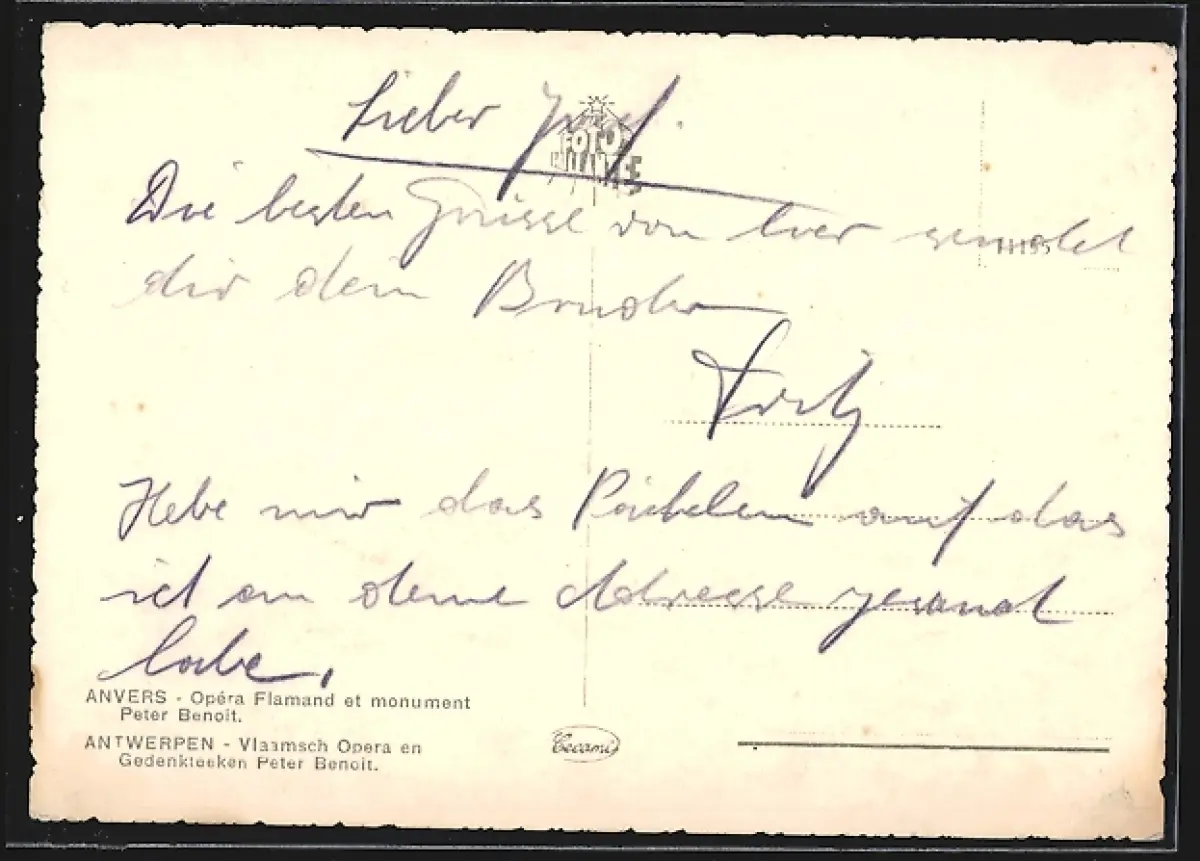 Lieber Josef.
FOTO
Die besten Grüsse von hier sendet
11195
dir dein Bruder
Fritz
Hebe mir das auf das
ich an deine Adresse gesand
habe.
ANVERS - Opéra Flamand et monument
Peter Benoit.
ANTWERPEN - Vlaamsch Opera en
Gedenkteeken Peter Benoit.